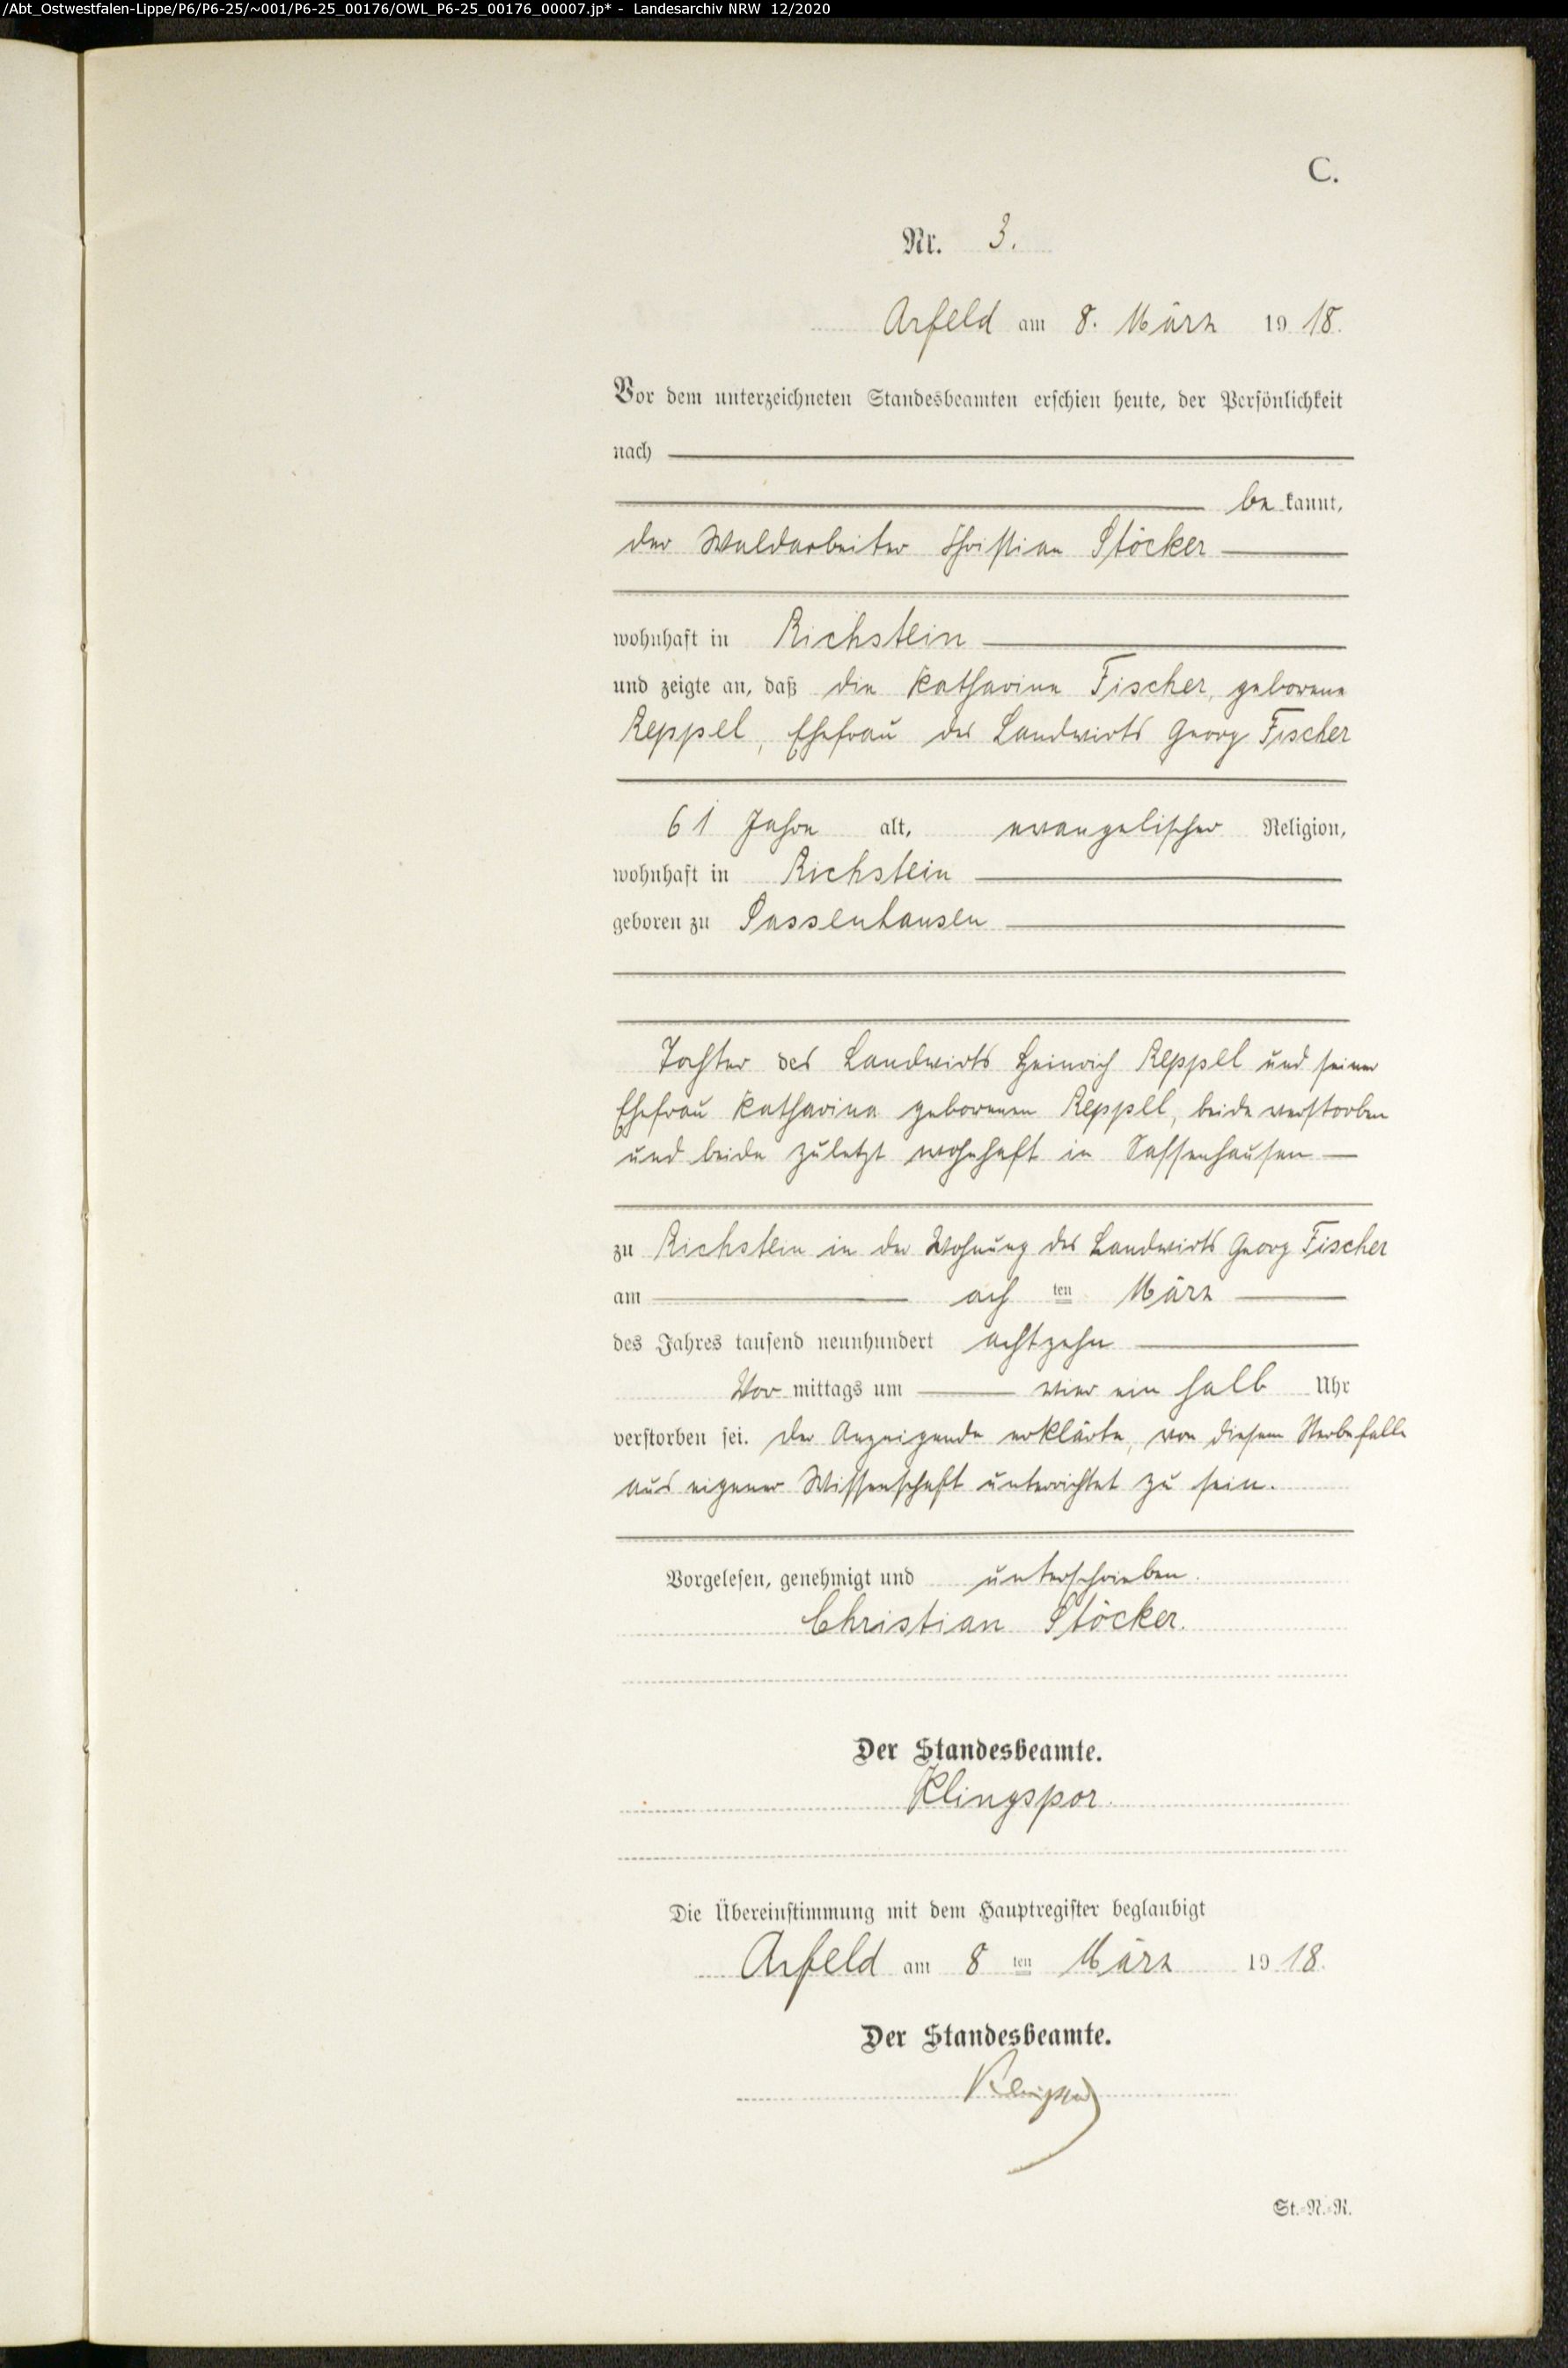 /Abt_Ostwestfalen-Lippe/P6/P6-25/~001/P6-25_00176/OWL_P6-25_00176_00007.jp* - Landesarchiv NRW 12/2020
C.
Nr. 3.
Arfeld am 8. März 1918.
Vor dem unterzeichneten Standesbeamten erschien heute, der Persönlichkeit
nach
be kannt,
der Waldarbeiter Christian Stöcker
wohnhaft in Richstein
und zeigte an, daß die Katharina Fischer, geborene
Reppel, Ehefrau des Landwirts Georg Fischer
61 Jahre alt, evangelischer Religion,
wohnhaft in Richstein
geboren zu Sassenhausen
Tochter des Landwirts Heinrich Reppel und seiner
Ehefrau Katharina geborenen Reppel, beide verstorben
und beide zuletzt wohnhaft in Sassenhausen
zu Richstein in der Wohnung des Landwirts Georg Fischer
am ach ten März
des Jahres tausend neunhundert achtzehn
Vor mittags um vier ein halb Uhr
verstorben sei. Der Anzeigende erklärte, von diesem Sterbefalle
aus eigener Wissenschaft unterrichtet zu sein.
Vorgelesen, genehmigt und unterschrieben.
Christian Stöcker.
Der Standesbeamte.
Klingspor.
Die Übereinstimmung mit dem Hauptregister beglaubigt
Arfeld am 8 ten März 1918.
Der Standesbeamte.
Klingspor
St.-N.-R.